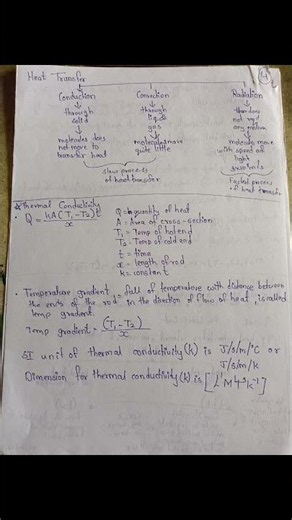 Heat Transfer
Conduction Convection Radiation
through solid
through liquid gas
does not
any medium
molecules does not move to transfer heat
molecules move quite little
molecules move with speed of light
slow process of heat transfer
Fastest process of heat transfer
Thermal Conductivity
Q = kA(T₁-T₂)t / x
Q = quantity of heat
A = Area of cross-section
T₁ = Temp of hot end
T₂ = Temp of cold end
t = time
x = length of rod
k = constant
Temperature gradient = fall of temperature with distance between
the ends of the rod in the direction of flow of heat, is called
temp gradient.
Temp gradient = (T₁-T₂) / x
SI unit of thermal conductivity (k) is J/s/m/°C or
J/s/m/k
Dimension for thermal conductivity (k) is